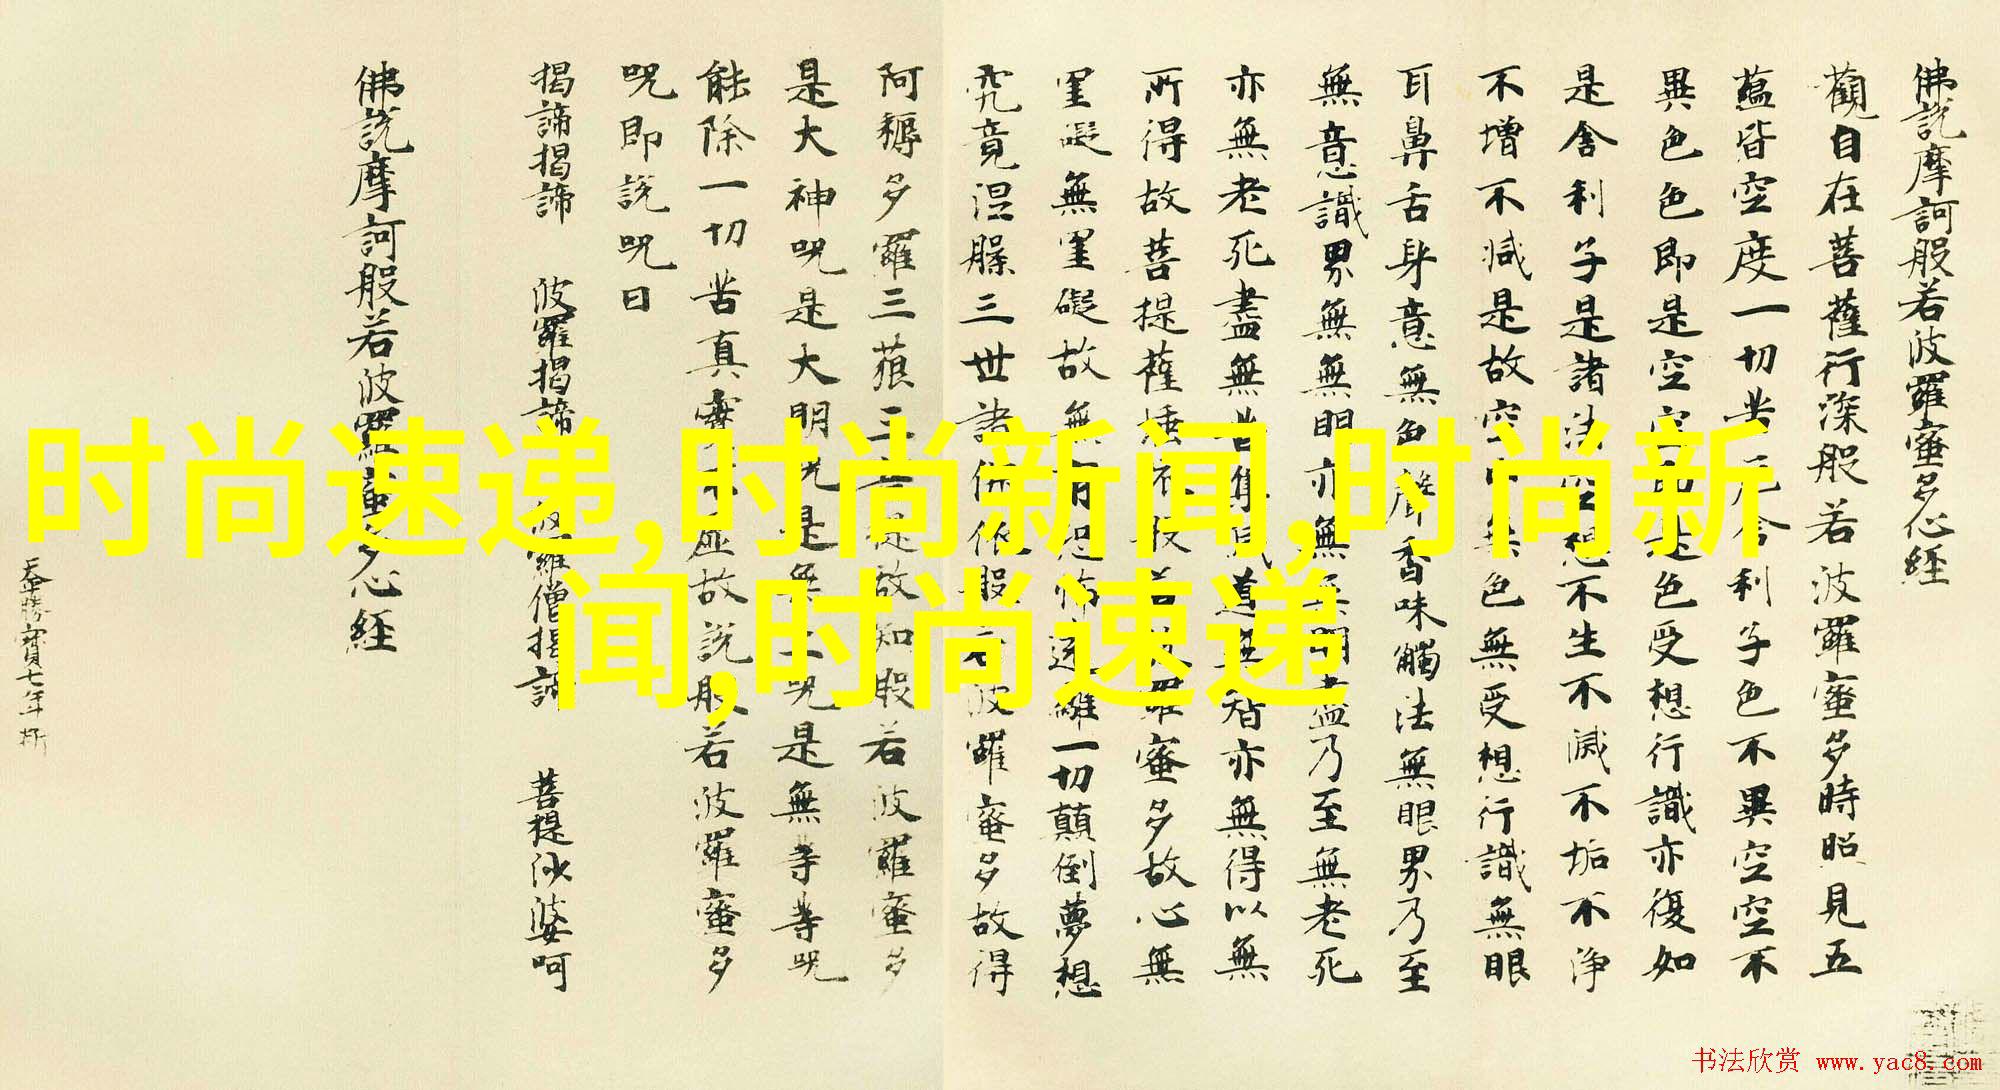 佛說摩訶般若波羅蜜多心經
觀自在菩薩行深般若波羅蜜多時照見五
蘊皆空度一切苦厄舍利子色不異空空不
異色色即是空空即是色受想行識亦復如
是舍利子是諸法空想不生不滅不垢不淨
不增不減是故空中無色無受想行識無眼
耳鼻舌身意無色聲香味觸法無眼界乃至
無意識界無無明亦無無明盡乃至無老死
亦無老死盡無苦集滅道無智亦無得以無
所得故菩提薩埵依般若波羅蜜多故心無
罣礙無罣礙故無有恐怖遠離一切顛倒夢想
究竟涅槃三世諸佛依般若波羅蜜多故得
阿耨多羅三藐三菩提故知般若波羅蜜多
是大神咒是大明咒是無上咒是無等等咒
能除一切苦真實不虛故說般若波羅蜜多
咒即說咒曰
揭諦揭諦 波羅揭諦 波羅僧揭諦 菩提沙婆呵
佛說摩訶般若波羅蜜多心經
天平勝寶七年
时尚速递,时尚新闻,时尚新
闻,时尚速递
书法欣赏 www.yac8.com